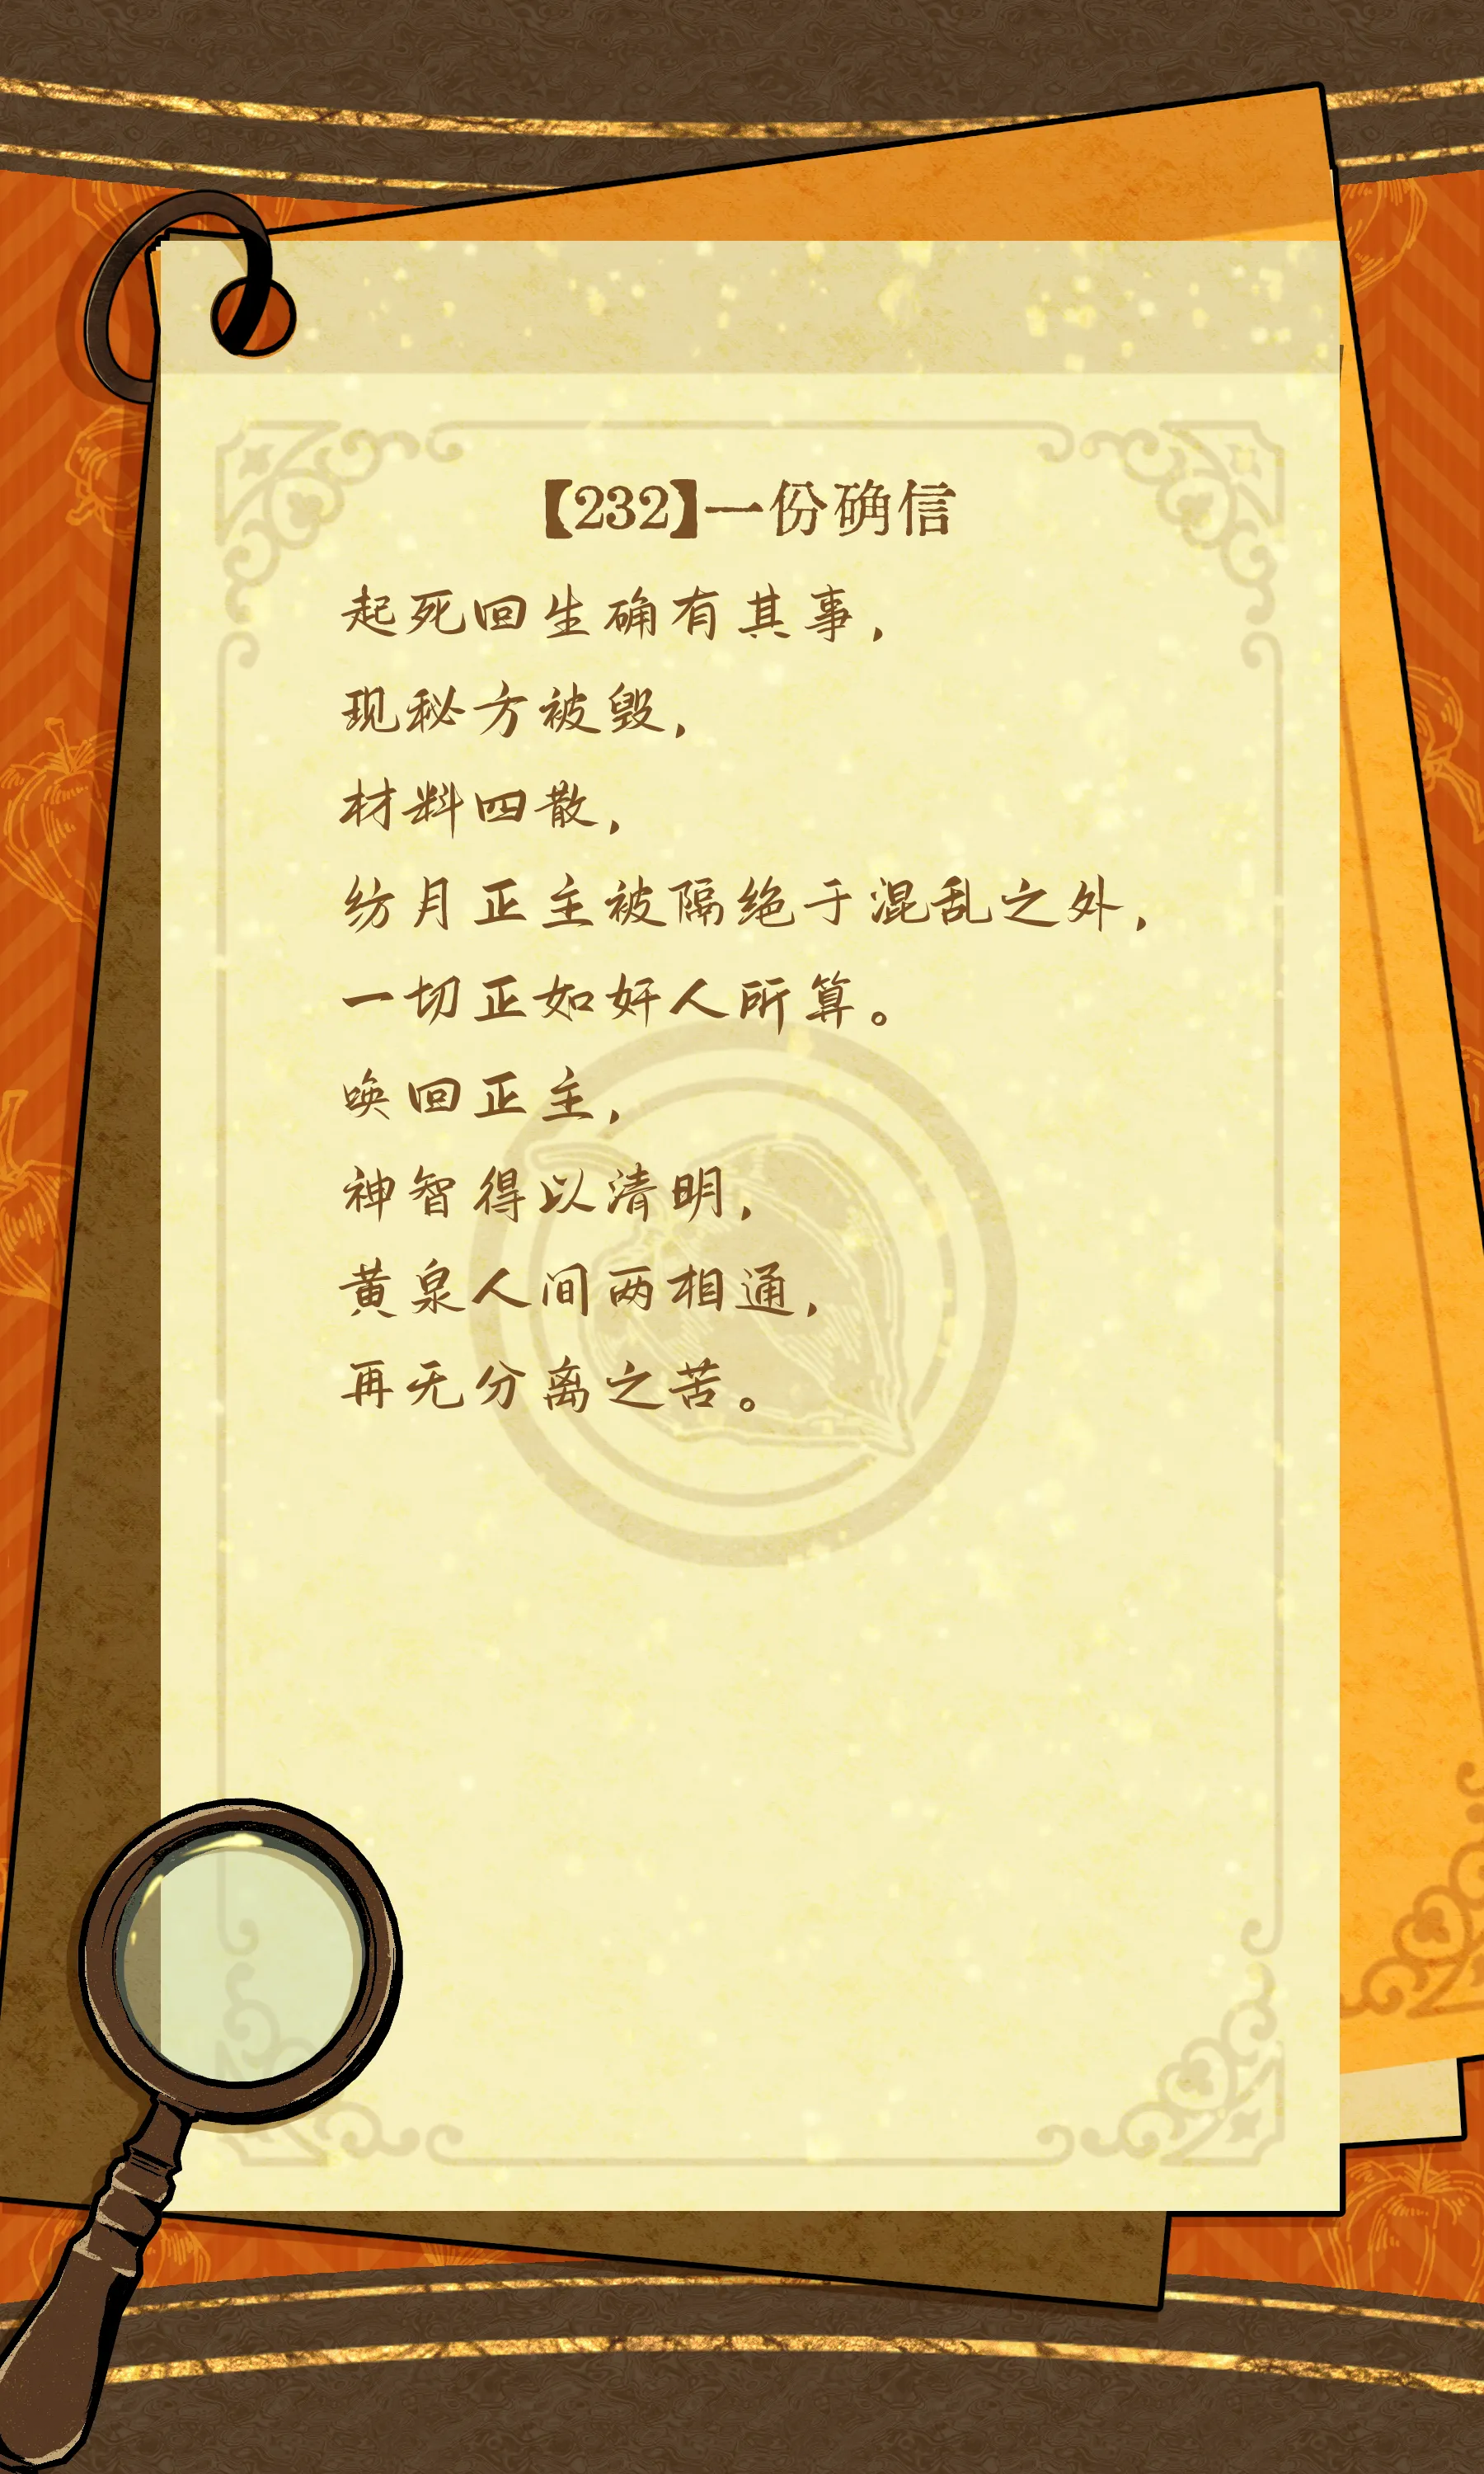 【232】一份确信
起死回生确有其事，
现秘方被毁，
材料四散，
纺月正主被隔绝于混乱之外，
一切正如奸人所算。
唤回正主，
神智得以清明，
黄泉人间两相通，
再无分离之苦。